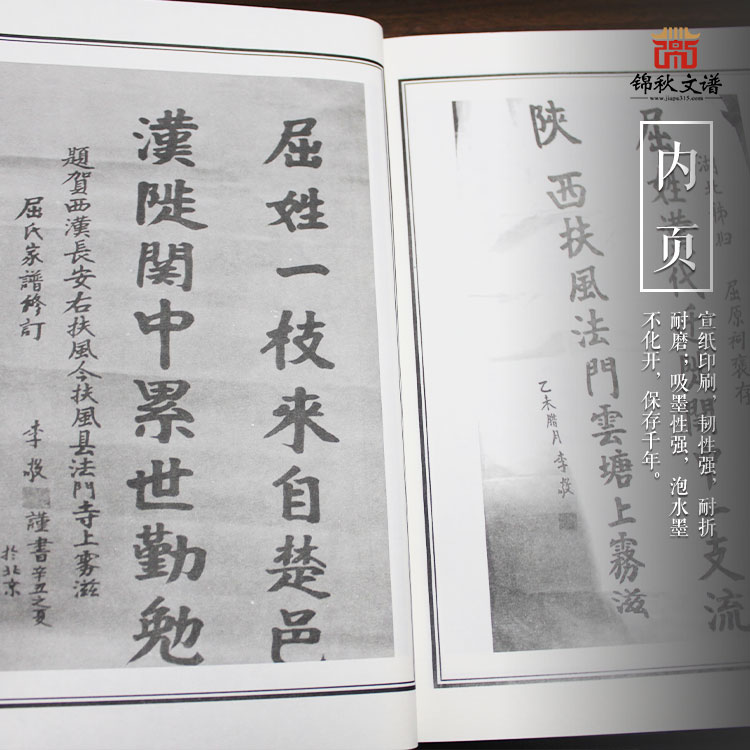 屈姓一枝来自楚邑
漢陡関中累世勤勉
題賀西漢長安右扶風今扶風县法門寺上霧滋
屈氏家譜修訂
李
謹書辛丑之夏
於北京
錦秋文谱
www.jiapu315.com
内页
宣纸印刷，韧性强，耐折
耐磨；吸墨性强，泡水墨
不化开，保存千年。
湖北秭归
屈原
屈姓漢代
関中一支流
陝西扶風法門雲塘上霧滋
乙未腊月李